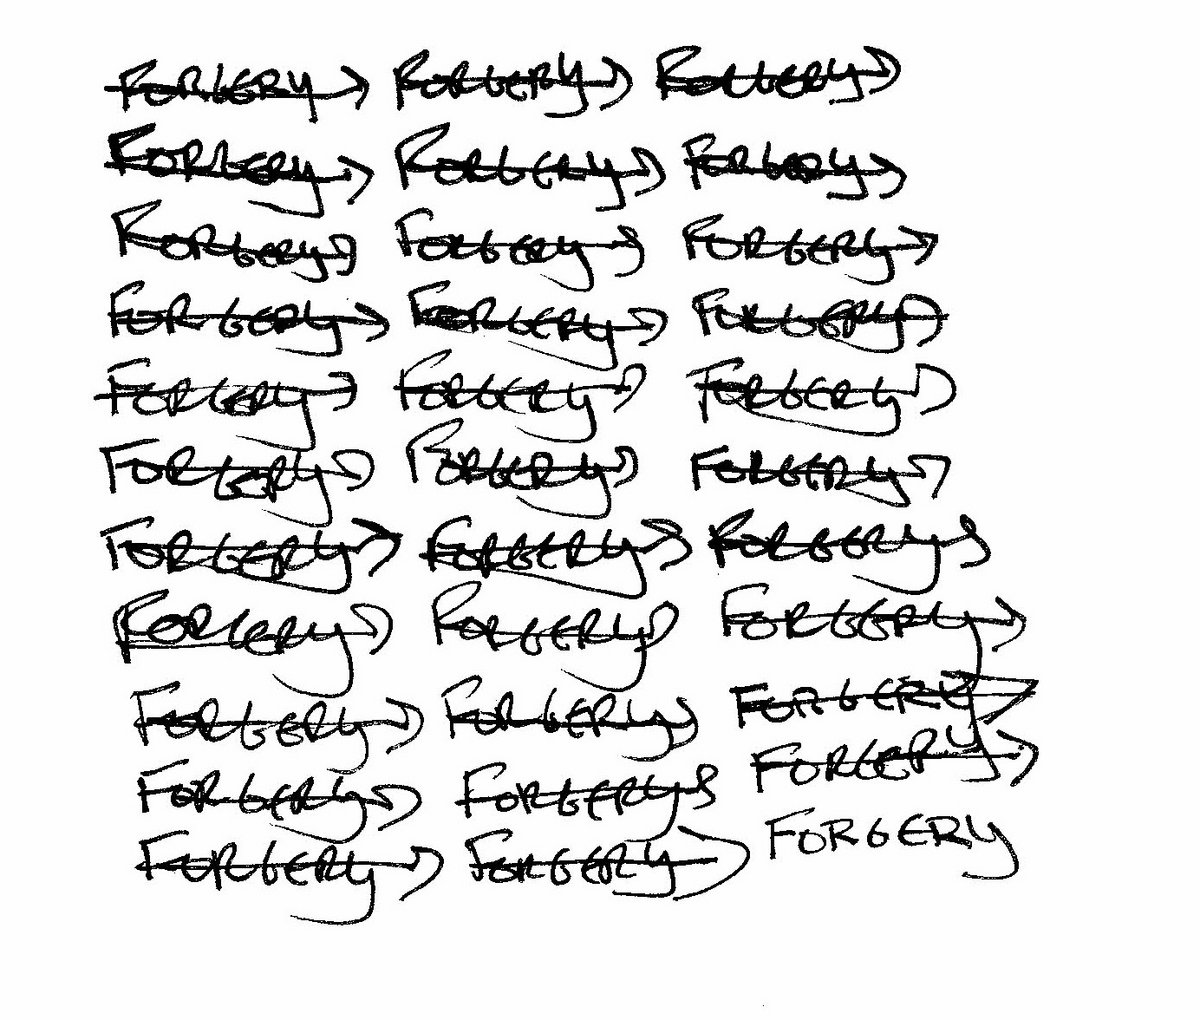 FORGERY FORGERY FORGERY
FORGERY FORGERY FORGERY
FORGERY FORGERY FORGERY
FORGERY FORGERY FORGERY
FORGERY FORGERY FORGERY
FORGERY FORGERY FORGERY
FORGERY FORGERY FORGERY
FORGERY FORGERY FORGERY
FORGERY FORGERY FORGERY
FORGERY FORGERY FORGERY
FORGERY FORGERY FORGERY